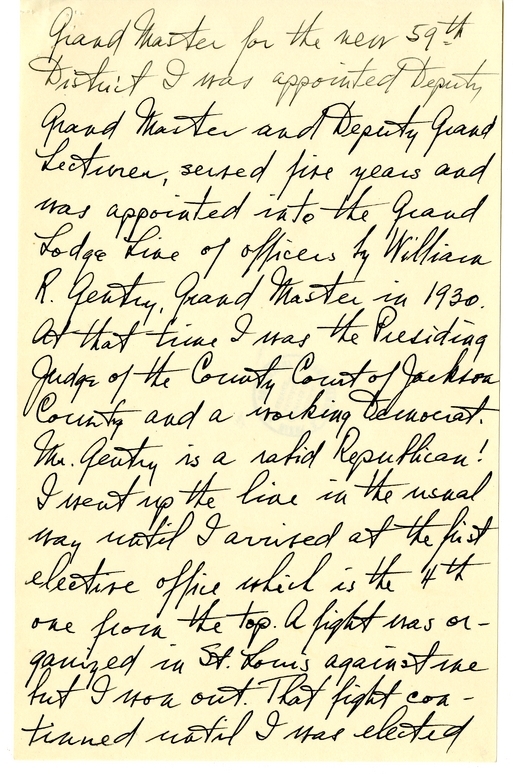 Grand Master for the new 59th
District I was appointed Deputy
Grand Master and Deputy Grand
Lecturer, served five years and
was appointed into the Grand
Lodge Line of officers by William
R. Gentry, Grand Master in 1930.
At that time I was the Presiding
Judge of the County Court of Jackson
County and a working Democrat.
Mr. Gentry is a rabid Republican!
I went up the line in the usual
way until I arrived at the first
elective office which is the 4th
one from the top. A fight was or-
ganized in St. Louis against me
but I won out. That fight con-
tinued until I was elected